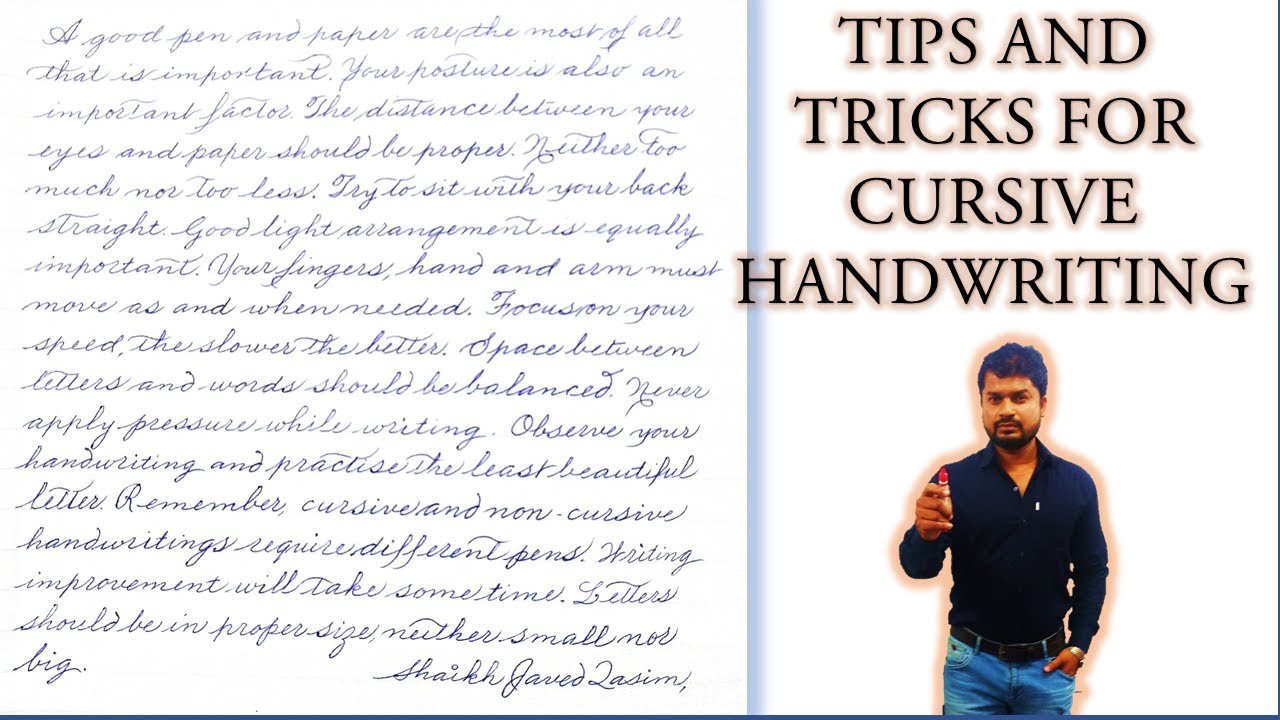 A good pen and paper are the most of all
that is important. Your posture is also an
important factor. The distance between your
eyes and paper should be proper. Neither too
much nor too less. Try to sit with your back
straight. Good light arrangement is equally
important. Your fingers, hand and arm must
move as and when needed. Focus on your
speed, the slower the better. Space between
letters and words should be balanced. Never
apply pressure while writing. Observe your
handwriting and practise the least beautiful
letter. Remember, cursive and non-cursive
handwritings require different pens. Writing
improvement will take some time. Letters
should be in proper size, neither small nor
big.
Shaikh Javed Qasim,
TIPS AND
TRICKS FOR
CURSIVE
HANDWRITING